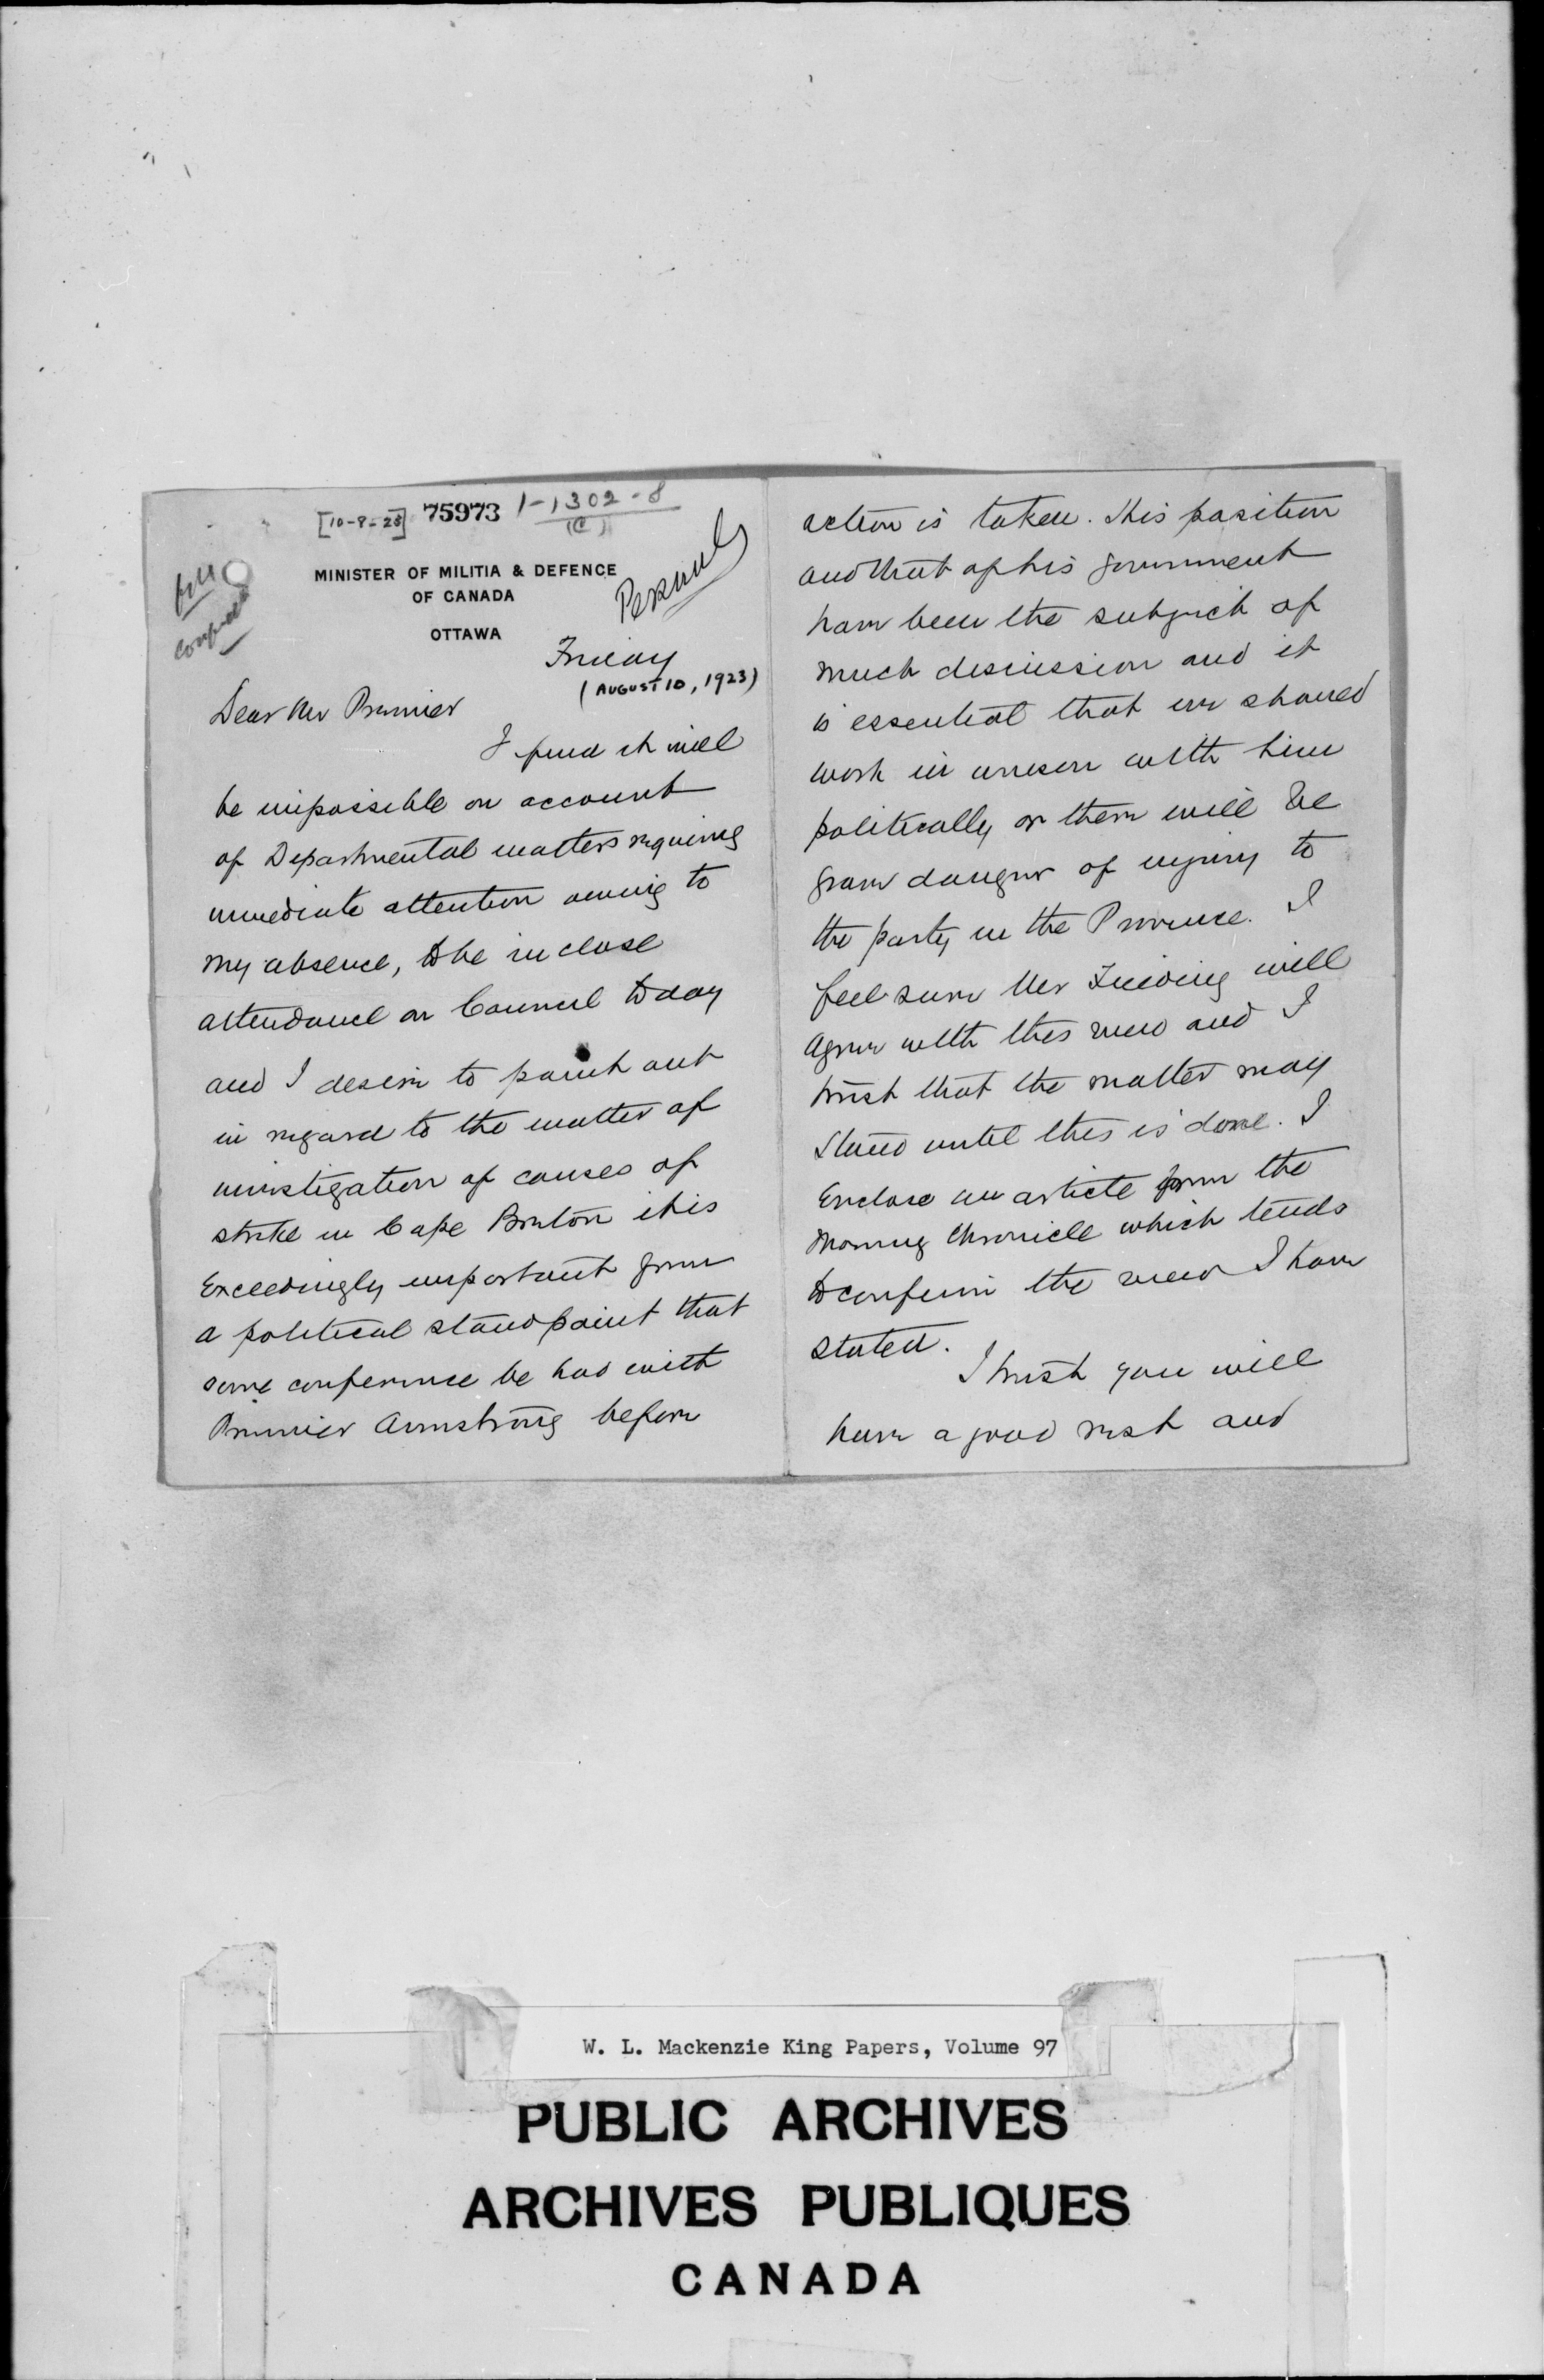 [10-8-23] 75973 1-1302-8
(C)
MINISTER OF MILITIA & DEFENCE
OF CANADA
OTTAWA
Personal
Friday
(AUGUST 10, 1923)
Dear Mr Premier
I find it will
be impossible on account
of Departmental matters requiring
immediate attention owing to
my absence, to be in close
attendance on Council today
and I desire to point out
in regard to the matter of
investigation of causes of
strike in Cape Breton it is
exceedingly important from
a political standpoint that
some conference be had with
Premier Armstrong before
action is taken. His position
and that of his government
have been the subject of
much discussion and it
is essential that we should
work in unison with him
politically or there will be
grave danger of injury to
the party in the Province. I
feel sure Mr Fielding will
agree with this view and I
trust that the matter may
stand until this is done. I
enclose an article from the
Morning Chronicle which tends
to confirm the view I have
stated.
I trust you will
have a good rest and
W. L. Mackenzie King Papers, Volume 97
PUBLIC ARCHIVES
ARCHIVES PUBLIQUES
CANADA